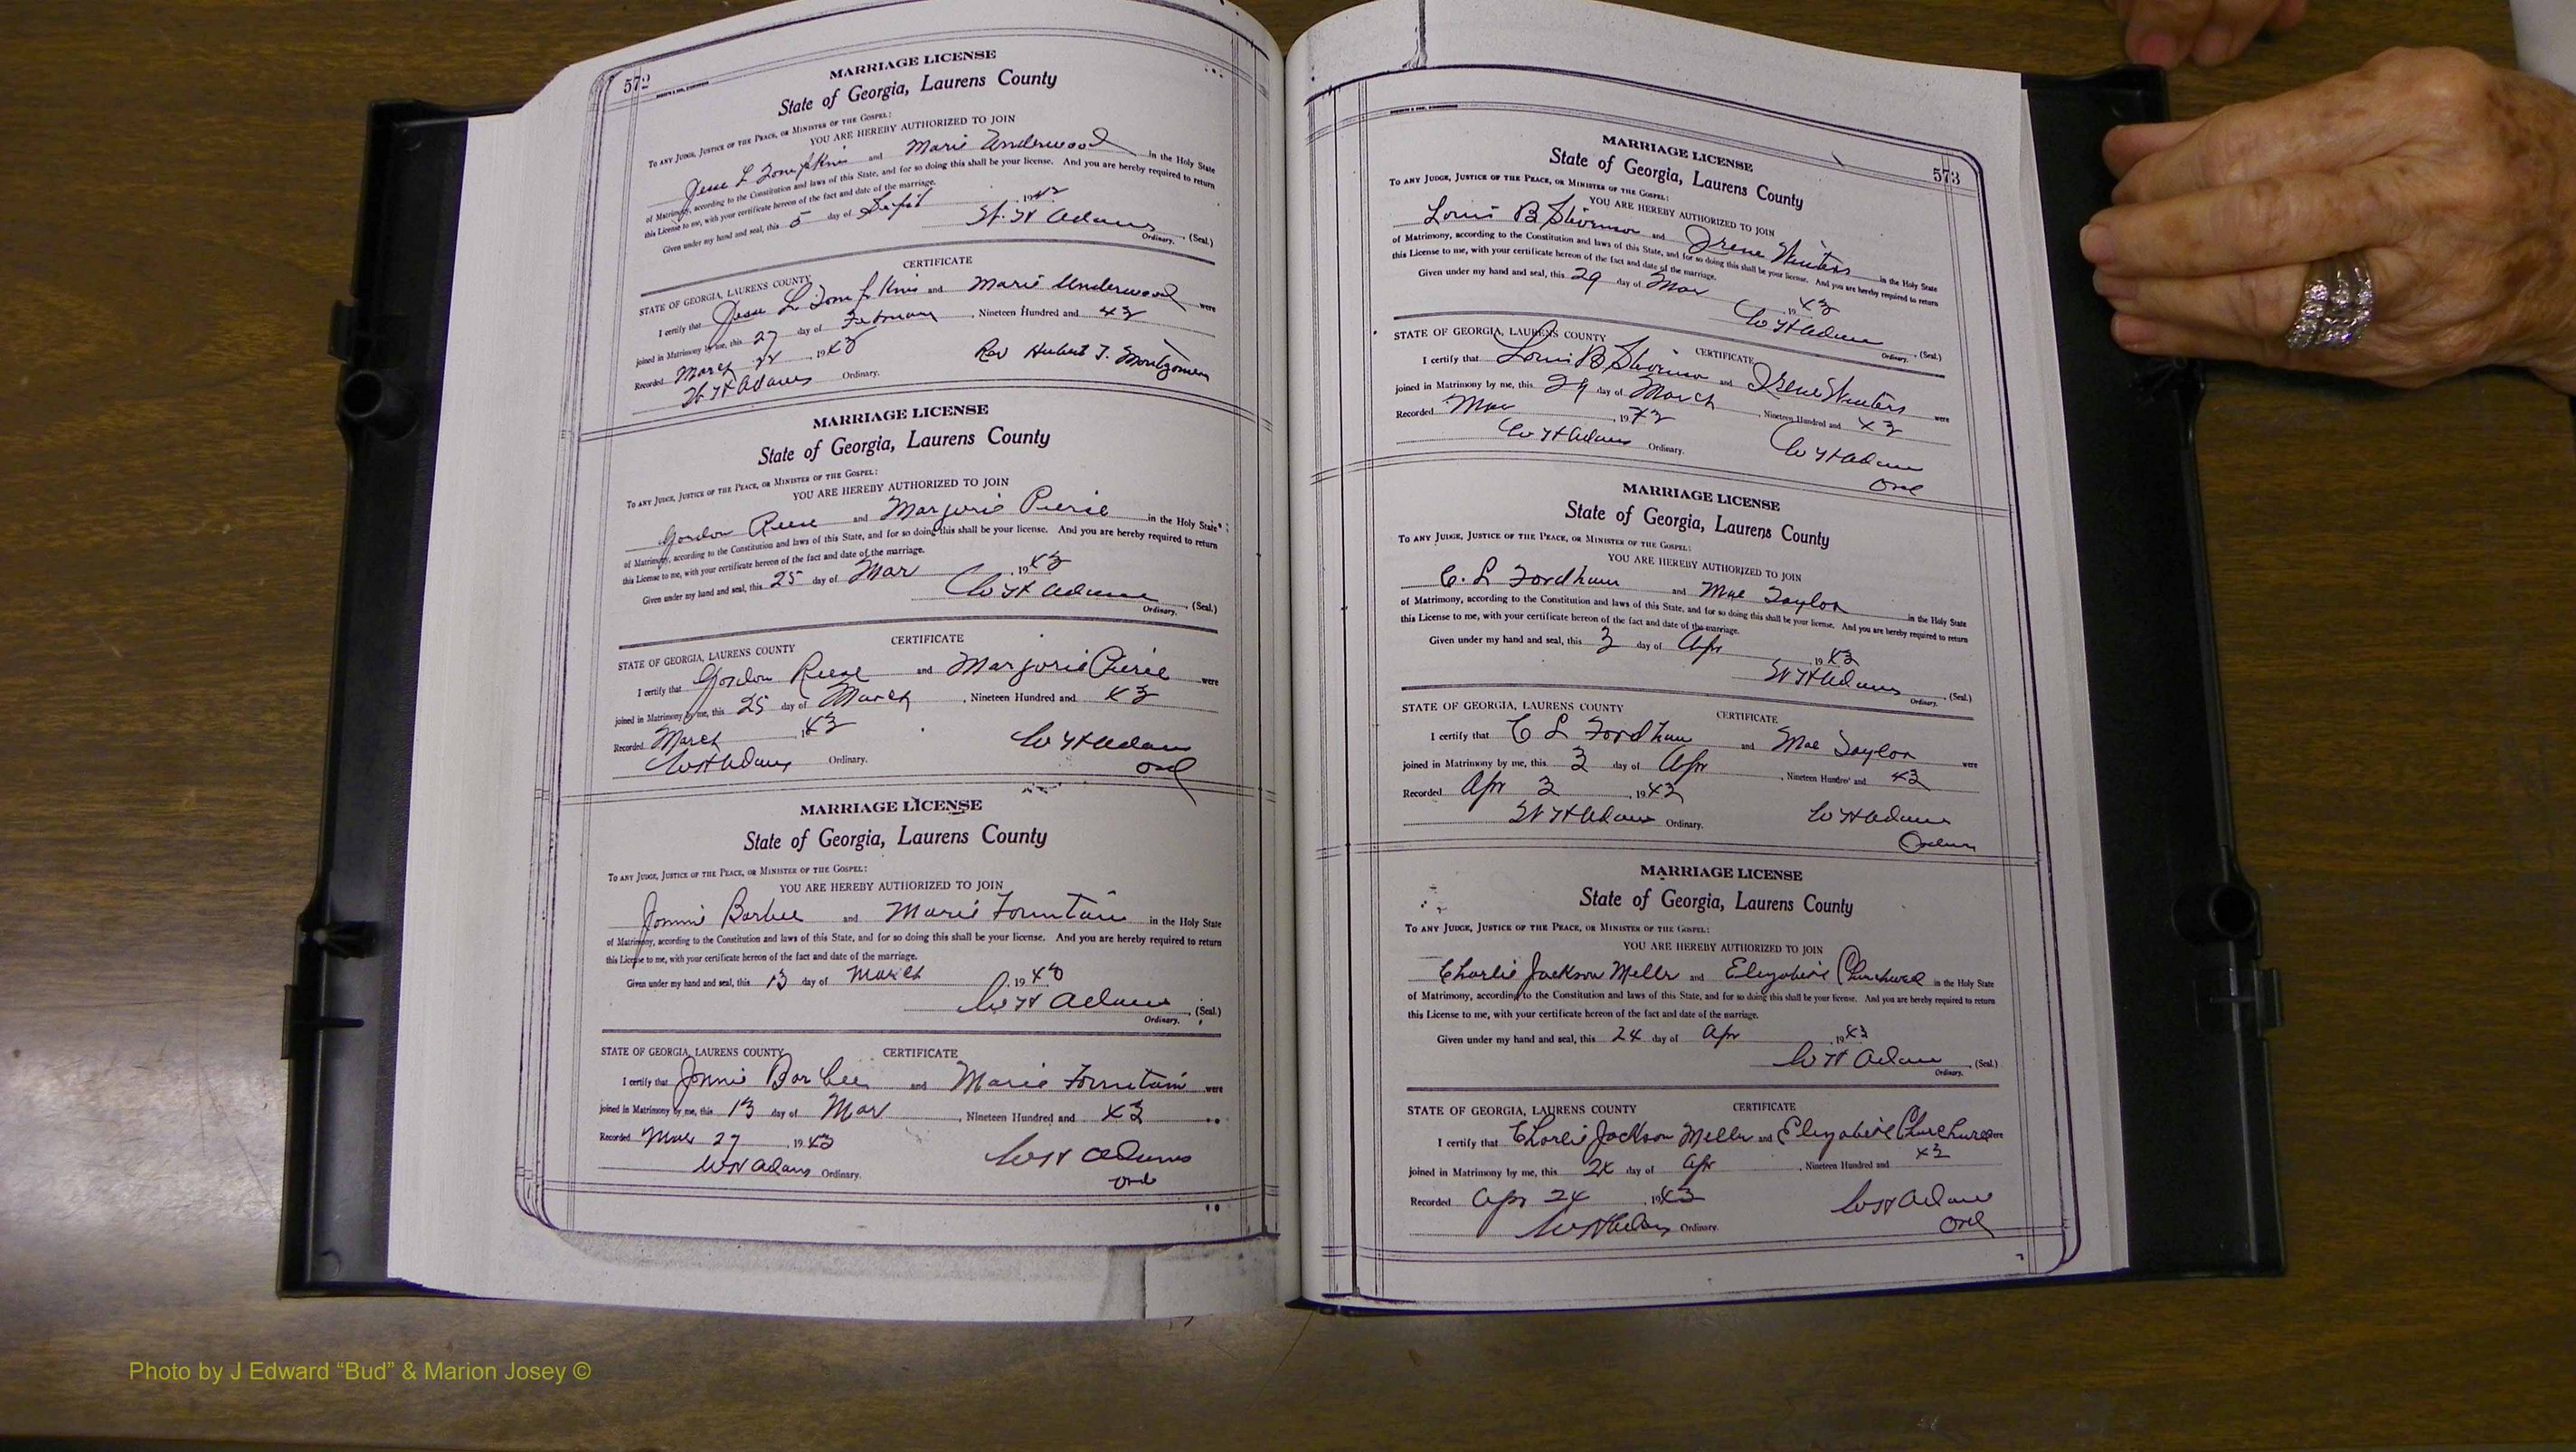 572
MARRIAGE LICENSE
State of Georgia, Laurens County
To any Judge, Justice of the Peace, or Minister of the Gospel:
YOU ARE HEREBY AUTHORIZED TO JOIN
Jesse L Tompkins and Marie Underwood in the Holy State
of Matrimony, according to the Constitution and laws of this State, and for so doing this shall be your license. And you are hereby required to return
this License to me, with your certificate hereon of the fact and date of the marriage.
Given under my hand and seal, this 5 day of Sept 1942
W H Adams (Seal.)
Ordinary.
CERTIFICATE
STATE OF GEORGIA, LAURENS COUNTY
I certify that Jesse L Tompkins and Marie Underwood were
joined in Matrimony by me, this 27 day of February, Nineteen Hundred and 43
Recorded March 1943 Rev Hubert T. Montgomery
W H Adams Ordinary.
MARRIAGE LICENSE
State of Georgia, Laurens County
To any Judge, Justice of the Peace, or Minister of the Gospel:
YOU ARE HEREBY AUTHORIZED TO JOIN
Gordon Reese and Marjorie Pierie in the Holy State
of Matrimony, according to the Constitution and laws of this State, and for so doing this shall be your license. And you are hereby required to return
this License to me, with your certificate hereon of the fact and date of the marriage.
Given under my hand and seal, this 25 day of Mar 1943
W H Adams (Seal.)
Ordinary.
CERTIFICATE
STATE OF GEORGIA, LAURENS COUNTY
I certify that Gordon Reese and Marjorie Pierie were
joined in Matrimony by me, this 25 day of March, Nineteen Hundred and 43
Recorded March 1943 W H Adams
W H Adams Ordinary. Ord
MARRIAGE LICENSE
State of Georgia, Laurens County
To any Judge, Justice of the Peace, or Minister of the Gospel:
YOU ARE HEREBY AUTHORIZED TO JOIN
Jonnie Barbee and Marie Fountain in the Holy State
of Matrimony, according to the Constitution and laws of this State, and for so doing this shall be your license. And you are hereby required to return
this License to me, with your certificate hereon of the fact and date of the marriage.
Given under my hand and seal, this 13 day of March 1943
W H Adams (Seal.)
Ordinary.
STATE OF GEORGIA, LAURENS COUNTY CERTIFICATE
I certify that Jonnie Barbee and Marie Fountain were
joined in Matrimony by me, this 13 day of Mar, Nineteen Hundred and 43
Recorded Mar 27 1943 W H Adams
W H Adams Ordinary. Ord
573
MARRIAGE LICENSE
State of Georgia, Laurens County
To any Judge, Justice of the Peace, or Minister of the Gospel:
YOU ARE HEREBY AUTHORIZED TO JOIN
Louis B and Irene Winters in the Holy State
of Matrimony, according to the Constitution and laws of this State, and for so doing this shall be your license. And you are hereby required to return
this License to me, with your certificate hereon of the fact and date of the marriage.
Given under my hand and seal, this 29 day of Mar 1943
W H Adams (Seal.)
Ordinary.
STATE OF GEORGIA, LAURENS COUNTY CERTIFICATE
I certify that Louis B and Irene Winters were
joined in Matrimony by me, this 29 day of March, Nineteen Hundred and 43
Recorded Mar 1943 W H Adams
W H Adams Ordinary. Ord
MARRIAGE LICENSE
State of Georgia, Laurens County
To any Judge, Justice of the Peace, or Minister of the Gospel:
YOU ARE HEREBY AUTHORIZED TO JOIN
C. L Fordham and Mae Taylor in the Holy State
of Matrimony, according to the Constitution and laws of this State, and for so doing this shall be your license. And you are hereby required to return
this License to me, with your certificate hereon of the fact and date of the marriage.
Given under my hand and seal, this 3 day of Apr 1943
W H Adams (Seal.)
Ordinary.
STATE OF GEORGIA, LAURENS COUNTY CERTIFICATE
I certify that C L Fordham and Mae Taylor were
joined in Matrimony by me, this 3 day of Apr, Nineteen Hundred and 43
Recorded Apr 3 1943 W H Adams
W H Adams Ordinary.
MARRIAGE LICENSE
State of Georgia, Laurens County
To any Judge, Justice of the Peace, or Minister of the Gospel:
YOU ARE HEREBY AUTHORIZED TO JOIN
Charlie Jackson Mellr and Elizabeth Churchwell in the Holy State
of Matrimony, according to the Constitution and laws of this State, and for so doing this shall be your license. And you are hereby required to return
this License to me, with your certificate hereon of the fact and date of the marriage.
Given under my hand and seal, this 24 day of Apr 1943
W H Adams (Seal.)
Ordinary.
STATE OF GEORGIA, LAURENS COUNTY CERTIFICATE
I certify that Charlie Jackson Mellr and Elizabeth Churchwell were
joined in Matrimony by me, this 24 day of Apr, Nineteen Hundred and 43
Recorded Apr 24 1943 W H Adams
W H Adams Ordinary. Ord
Photo by J Edward “Bud” & Marion Josey ©